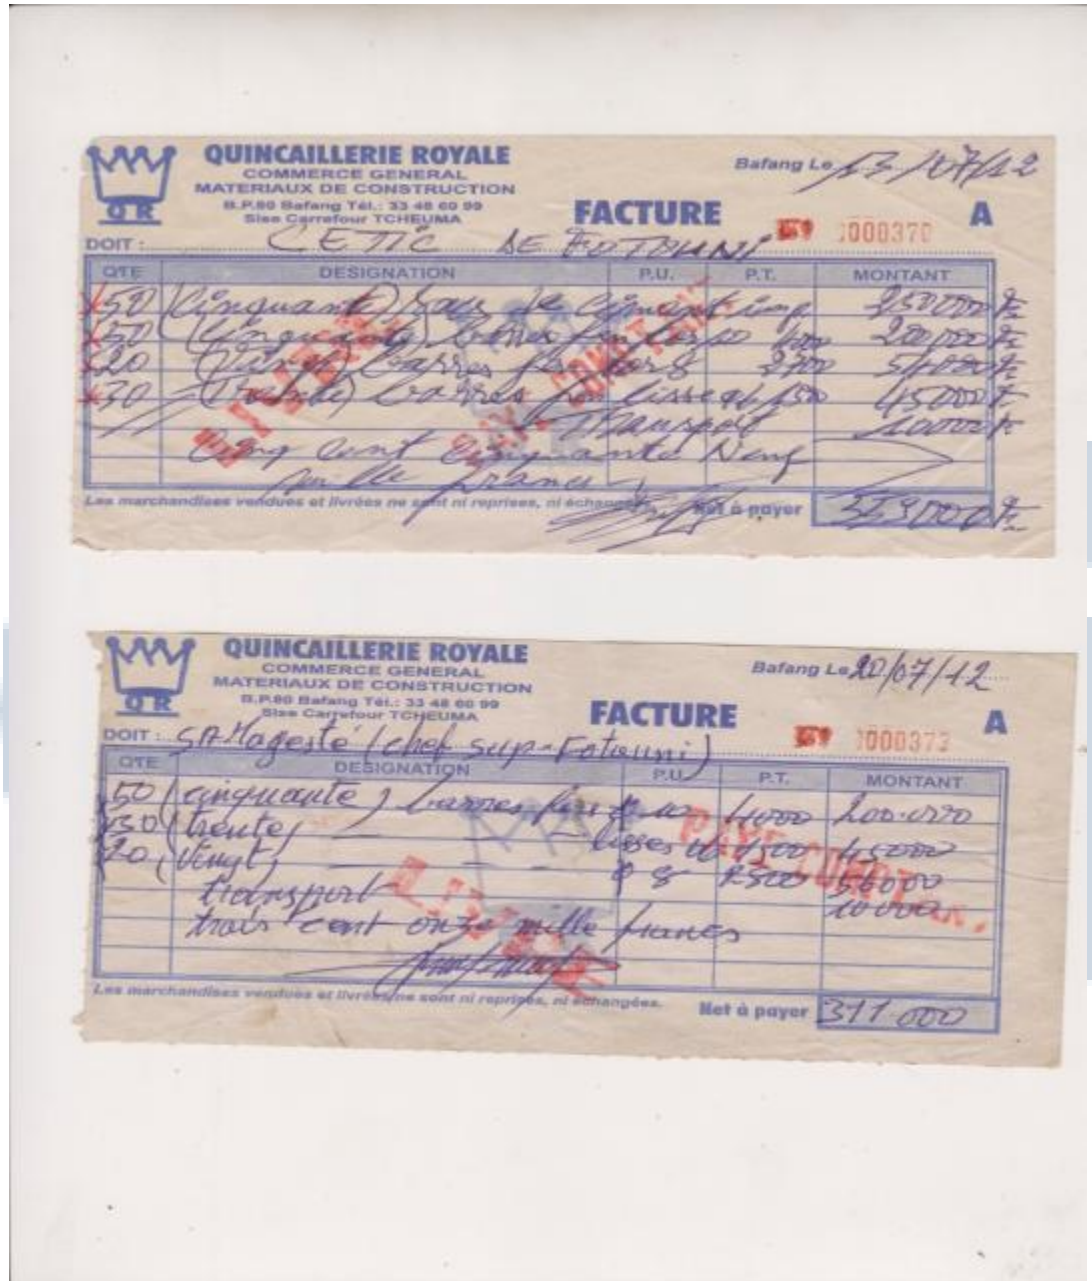 QUINCAILLERIE ROYALE
COMMERCE GENERAL
MATERIAUX DE CONSTRUCTION
B.P.80 Bafang Tél.: 33 48 60 99
Sise Carrefour TCHEUMA
QR
Bafang Le 13/07/12
FACTURE
N° 0000370 A
DOIT : CETIC DE FOTOUNI
QTE DESIGNATION P.U. P.T. MONTANT
50 (Cinquante) Sacs de ciment 250000 F
50 (Cinquante) barres 200000 F
20 (Vingt) barres 8 2700 54000 F
30 (Trente) barres lisses 45000 F
Transport 10000 F
Cinq cent cinquante Neuf
mille francs
LIVRE
PAYE COMPTANT
Les marchandises vendues et livrées ne sont ni reprises, ni échangées.
Net à payer 559000 F
QUINCAILLERIE ROYALE
COMMERCE GENERAL
MATERIAUX DE CONSTRUCTION
B.P.80 Bafang Tél.: 33 48 60 99
Sise Carrefour TCHEUMA
QR
Bafang Le 20/07/12
FACTURE
N° 0000373 A
DOIT : SA Magesté (chef sup-Fotouni)
QTE DESIGNATION P.U. P.T. MONTANT
50 (cinquante) barres fer 10 4000 200.000
30 (trente) — lisses 1500 45000
20 (Vingt) — 8 56000
transport 10000
trois cent onze mille francs
LIVRE
PAYE COMPTANT
Les marchandises vendues et livrées ne sont ni reprises, ni échangées.
Net à payer 311.000